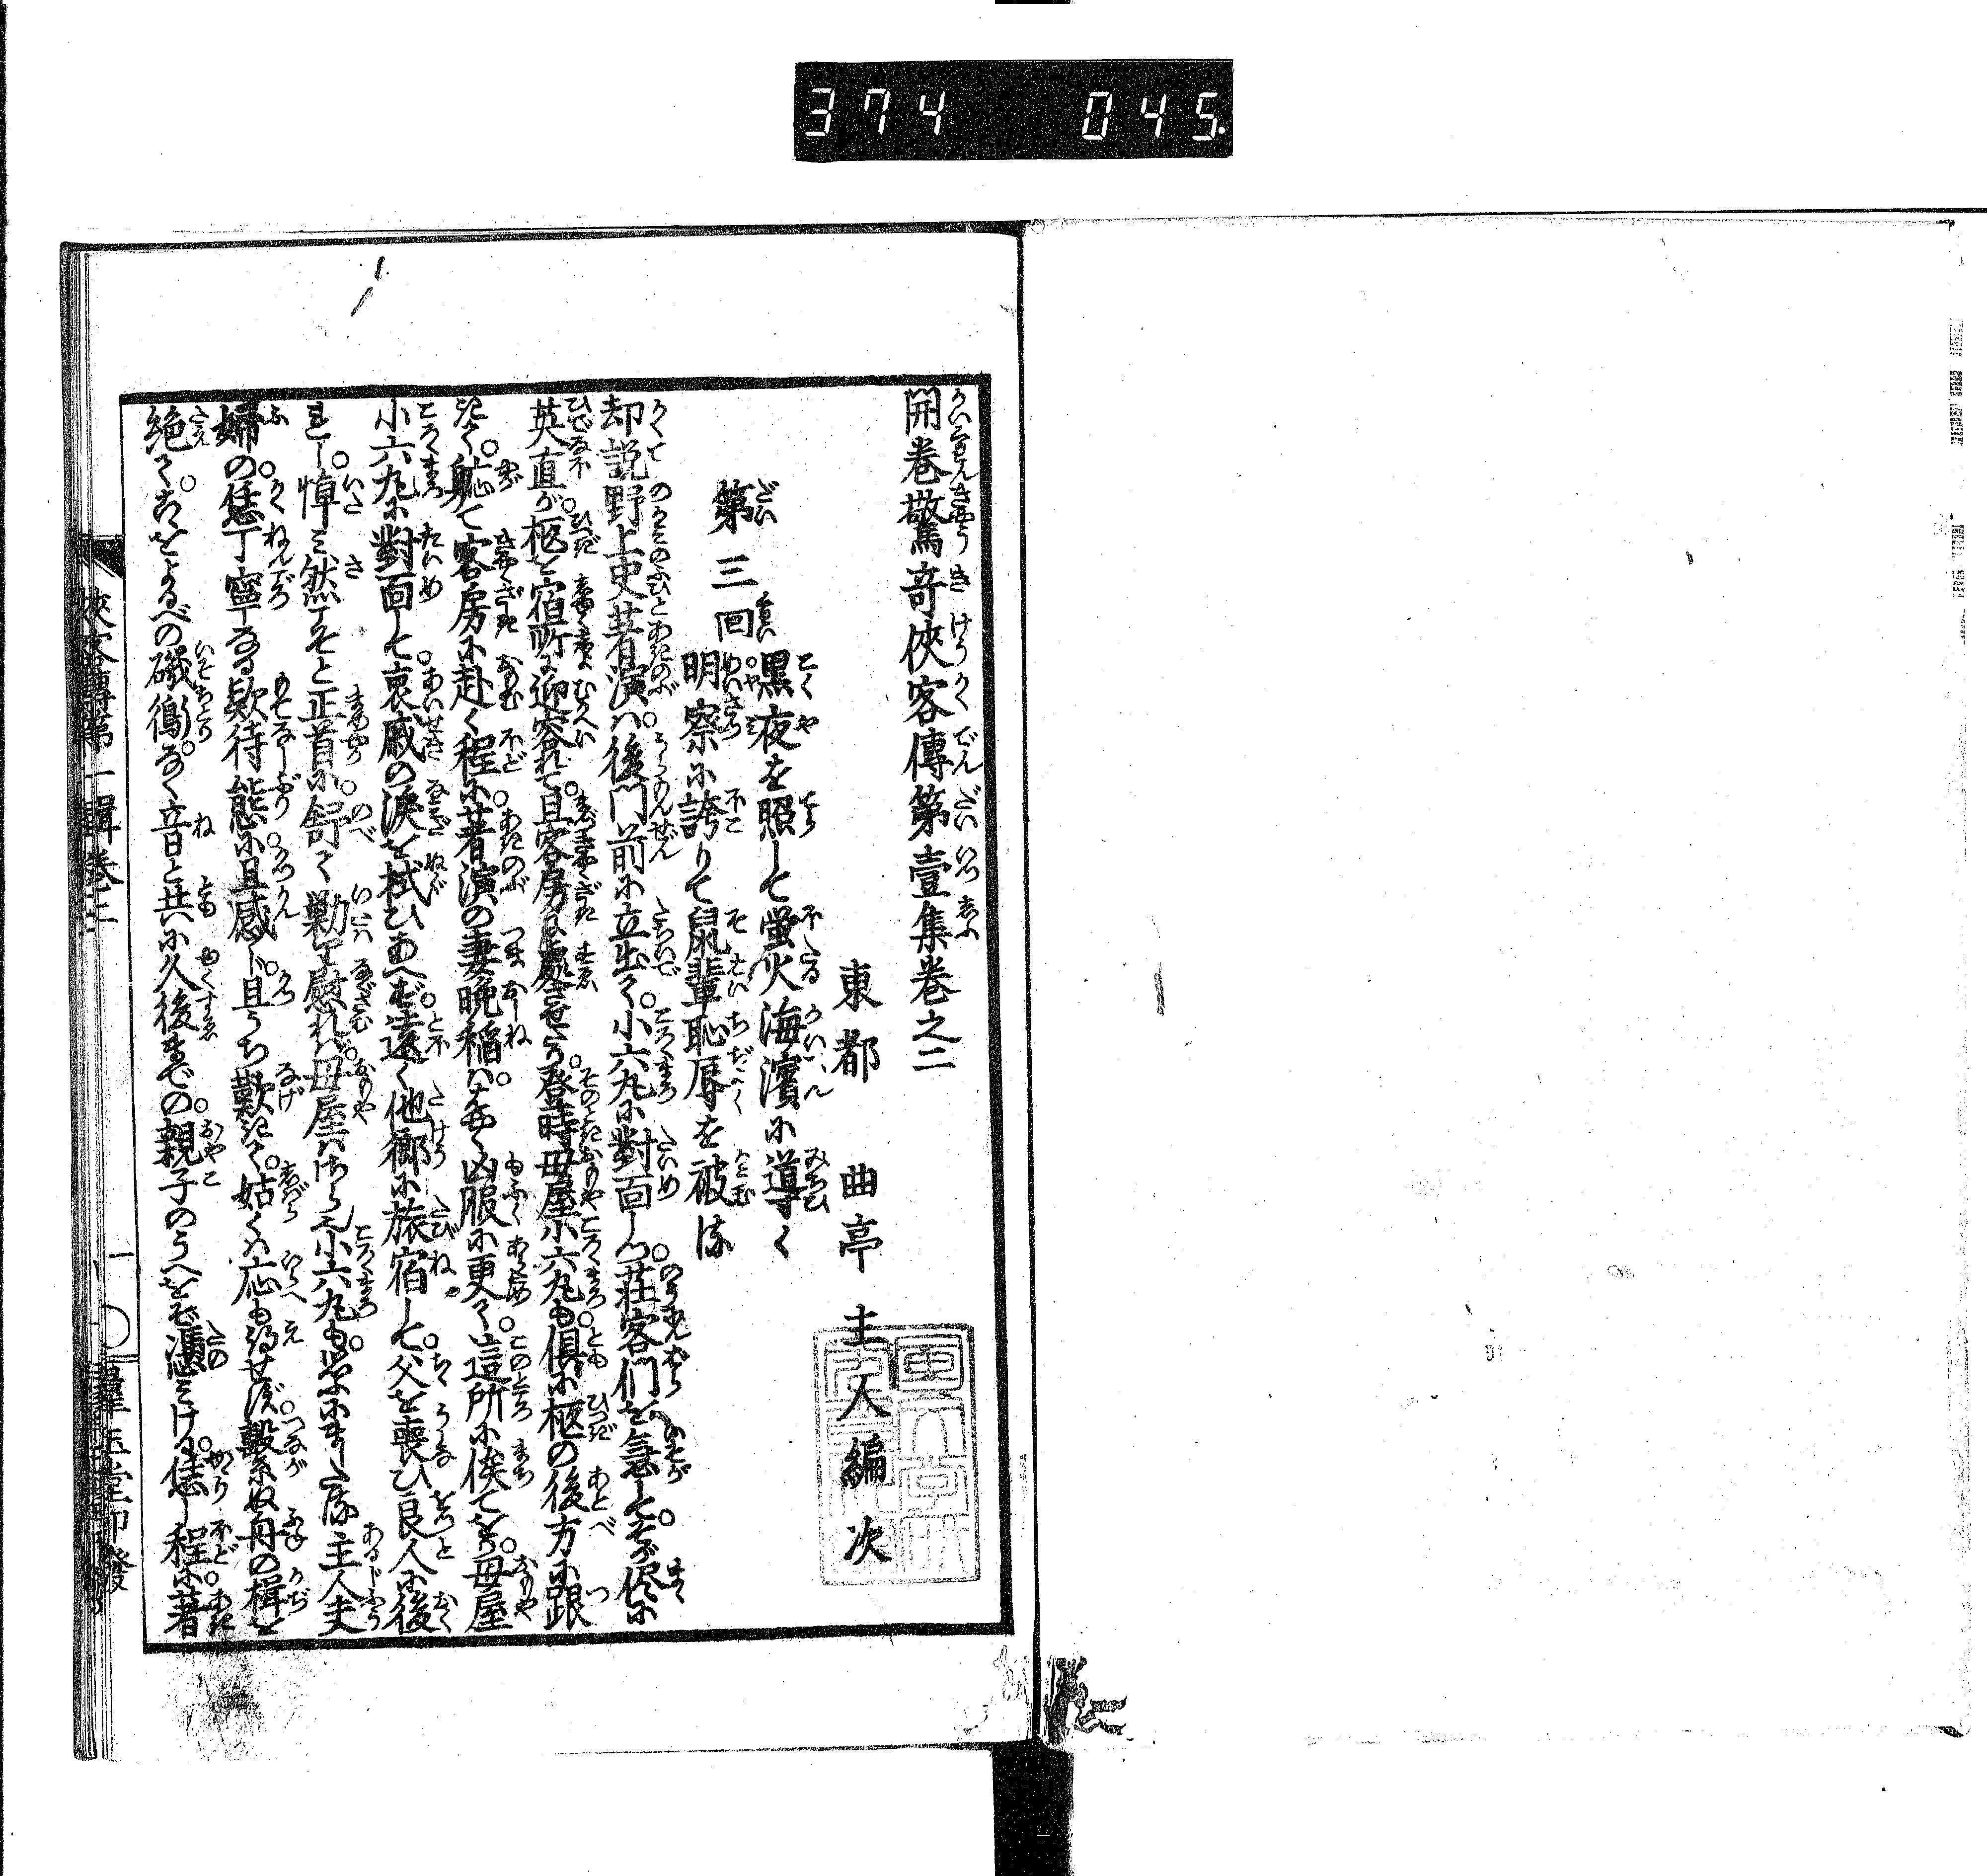 374 045
開卷驚奇俠客傳第壹集卷之二
東都 曲亭主人編次
第三回
黒夜を照して螢火海濱に導く
明察に誇りて鼠輩恥辱を被る
却説野上史著演は後門前に立出て。小六丸に對面しつ。莊客們を急して。そが侭に
英直が柩を宿所に迎容れて。且客房に處せたり。登時母屋小六丸も。倶に柩の後方に跟
たり。躮て客房に赴く程に。著演の妻晩稲は。はやく凶服に更て。這所に俟てをり。母屋
小六丸に對面して。哀戚の涙を拭ひあへず。遠く他郷に旅宿して。父を喪ひ良人に後
れし。悼み然こそと正首に。舒て勦り慰れば。母屋はさら也小六丸も。思ふにましたる主人夫
婦の。恁丁寧なる欵待態に。且感じ。且うち歎きて。姑くは応も得せず。繋ぬ舟の楫を
絶て。よるべの磯衛。なく音と共に久後までの。親子のうへをぞ憑みける。恁りし程に著